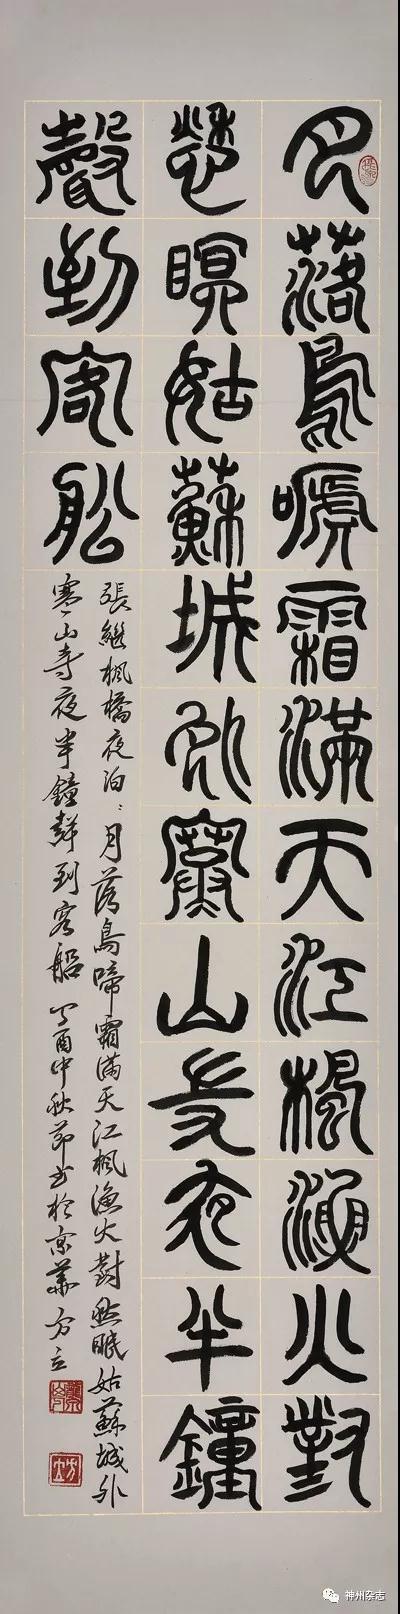 月落烏嗁霜滿天江楓漁火對
愁瞑姑蘇城外寒山寺夜半鐘
聲到客船
張繼楓橋夜泊、月落烏啼霜滿天江楓漁火對愁眠姑蘇城外
寒山寺夜半鐘聲到客船 丁酉中秋節書於京華方立
神州杂志